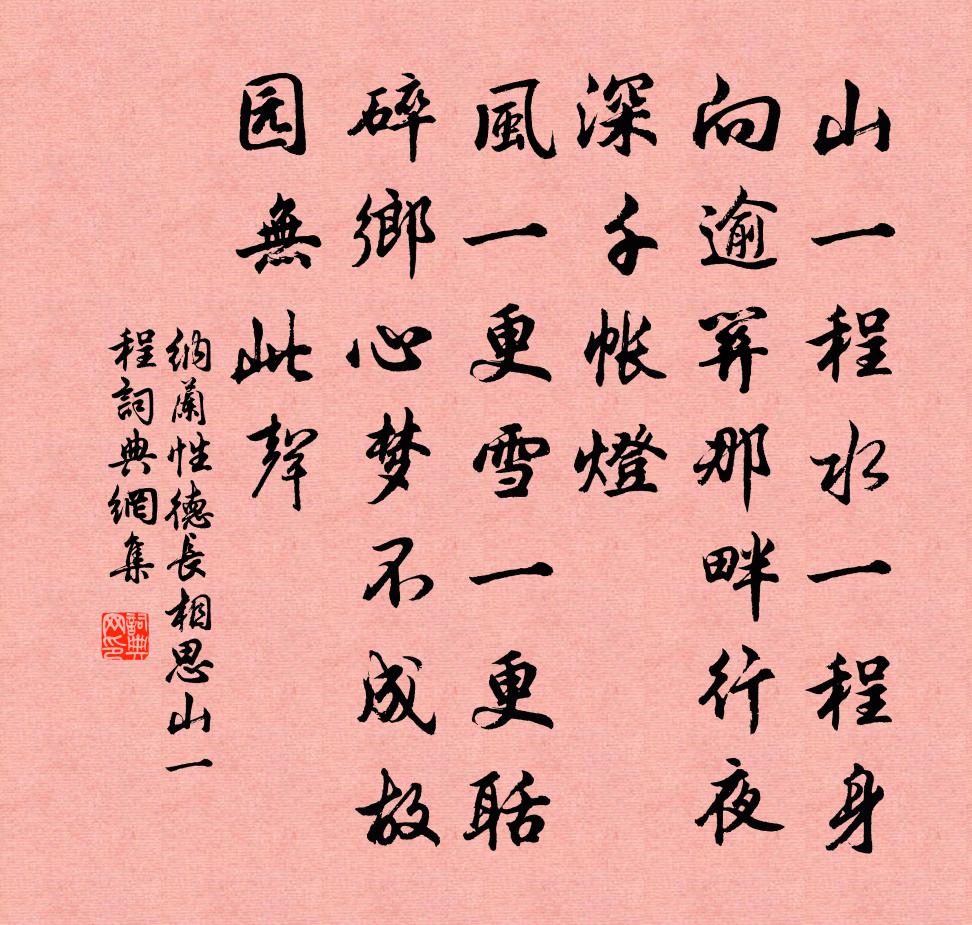 山一程水一程身
向逾关那畔行夜
深千帐燈
風一更雪一更聒
碎鄉心梦不成故
园無此聲
纳蘭性德長相思山一
程詞典網集
詞典网印